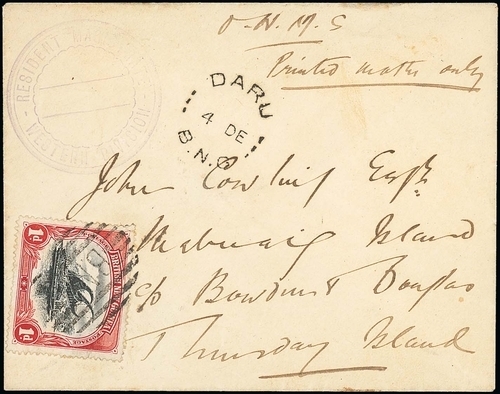 O.H.M.S
Printed matter only
RESIDENT MA
WESTERN DIVISION
DARU
4 DE
B.N.G
John Cowling Esqr.
Mabuiag Island
c/o Bowden & Douglas
Thursday Island
1d
BRITISH NEW GUINEA
POSTAGE
1d